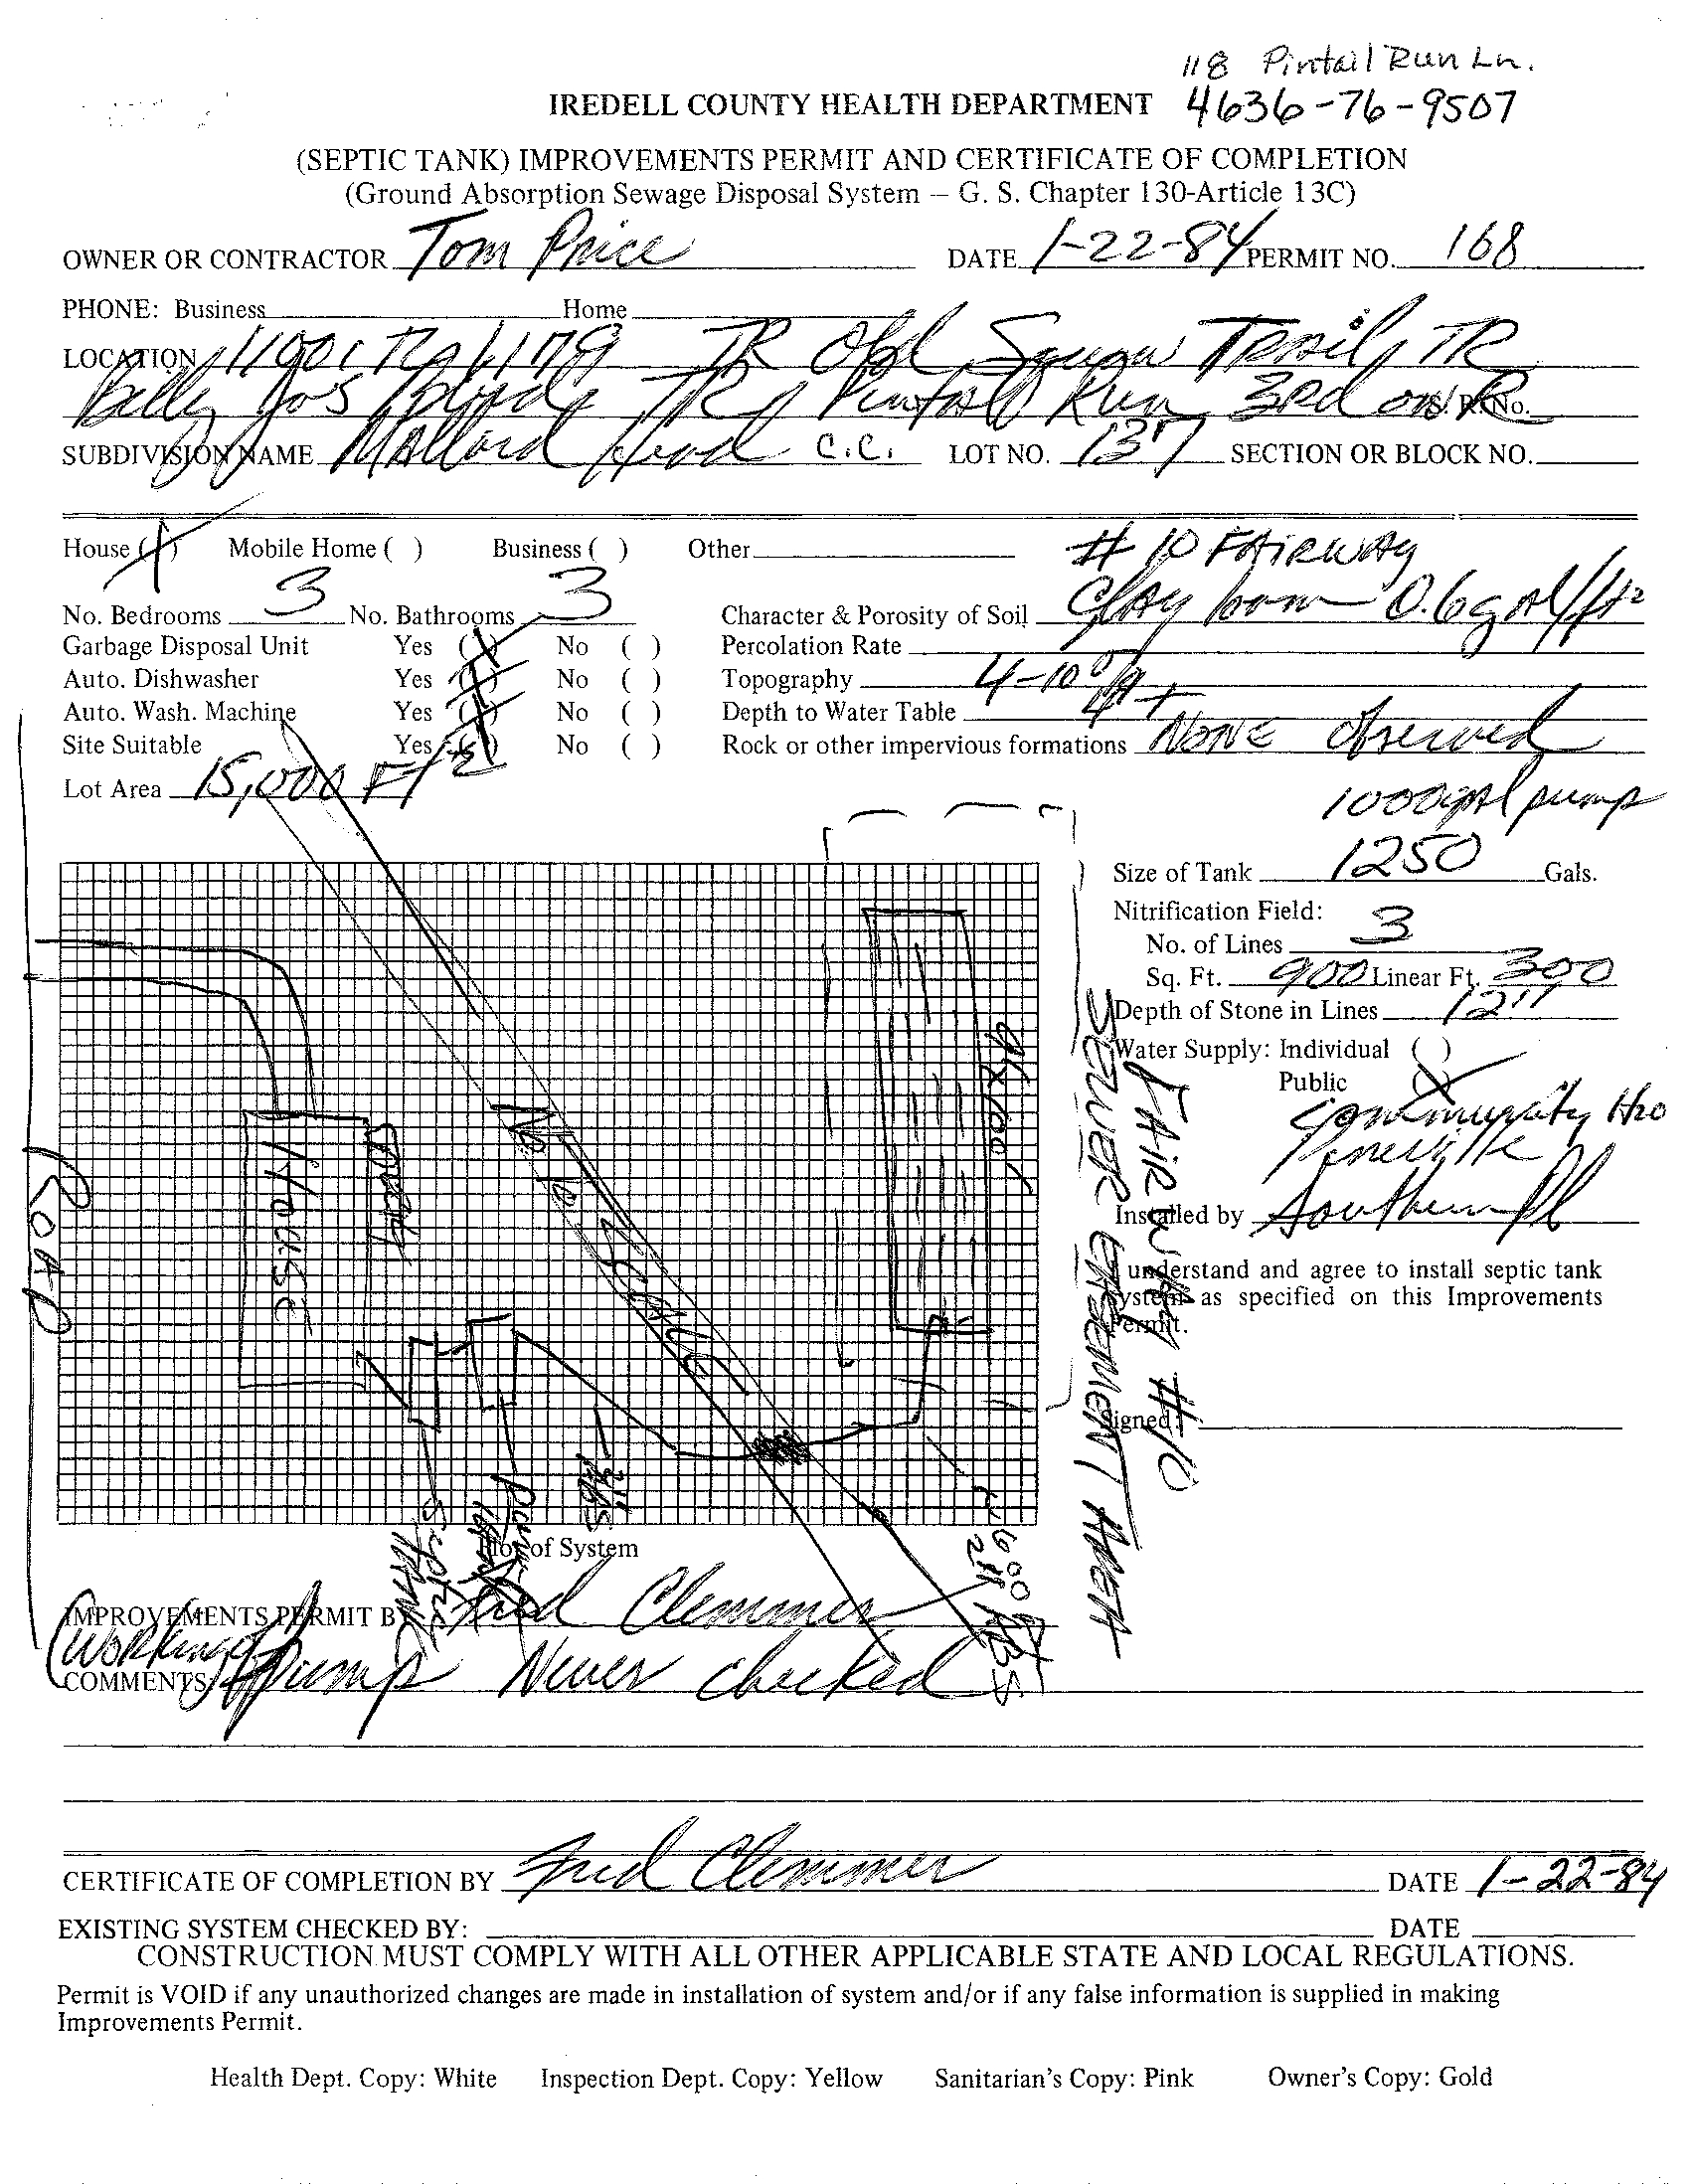 118 Pintail Run Ln.
IREDELL COUNTY HEALTH DEPARTMENT 4636-76-9507
(SEPTIC TANK) IMPROVEMENTS PERMIT AND CERTIFICATE OF COMPLETION
(Ground Absorption Sewage Disposal System – G. S. Chapter 130-Article 13C)
OWNER OR CONTRACTOR Tom Price DATE 1-22-84 PERMIT NO. 168
PHONE: Business Home
LOCATION TR Old Squaw Trail, TR
Billy Jo's TR Pintail Run 3rd on R S. R. No.
SUBDIVISION NAME Mallard Head C.C. LOT NO. 137 SECTION OR BLOCK NO.
House (X) Mobile Home ( ) Business ( ) Other # 10 FAIRWAY
No. Bedrooms 3 No. Bathrooms 3 Character & Porosity of Soil Clay loam 0.6 gal/ft2
Garbage Disposal Unit Yes (X) No ( ) Percolation Rate
Auto. Dishwasher Yes (X) No ( ) Topography 4-10%
Auto. Wash. Machine Yes (X) No ( ) Depth to Water Table 4ft+
Site Suitable Yes (X) No ( ) Rock or other impervious formations NONE observed
Lot Area 15,000 Ft2
1000gal pump
Size of Tank 1250 Gals.
Nitrification Field:
No. of Lines 3
Sq. Ft. 900 Linear Ft. 300
Depth of Stone in Lines 12"
Water Supply: Individual ( )
Public (X)
Community H2O
Installed by Southern
I understand and agree to install septic tank
system as specified on this Improvements
Permit.
Signed
ROAD
House
No to SCALE
9x100'
SEWER EASEMENT AREA
FAIRWAY #10
Septic TANK
Pump
2" ABS
600 ft
2" ABS
Plot of System
IMPROVEMENTS PERMIT BY Fred Clemmer
COMMENTS (Working) Pump Never checked
CERTIFICATE OF COMPLETION BY Fred Clemmer DATE 1-22-84
EXISTING SYSTEM CHECKED BY: DATE
CONSTRUCTION MUST COMPLY WITH ALL OTHER APPLICABLE STATE AND LOCAL REGULATIONS.
Permit is VOID if any unauthorized changes are made in installation of system and/or if any false information is supplied in making
Improvements Permit.
Health Dept. Copy: White Inspection Dept. Copy: Yellow Sanitarian's Copy: Pink Owner's Copy: Gold